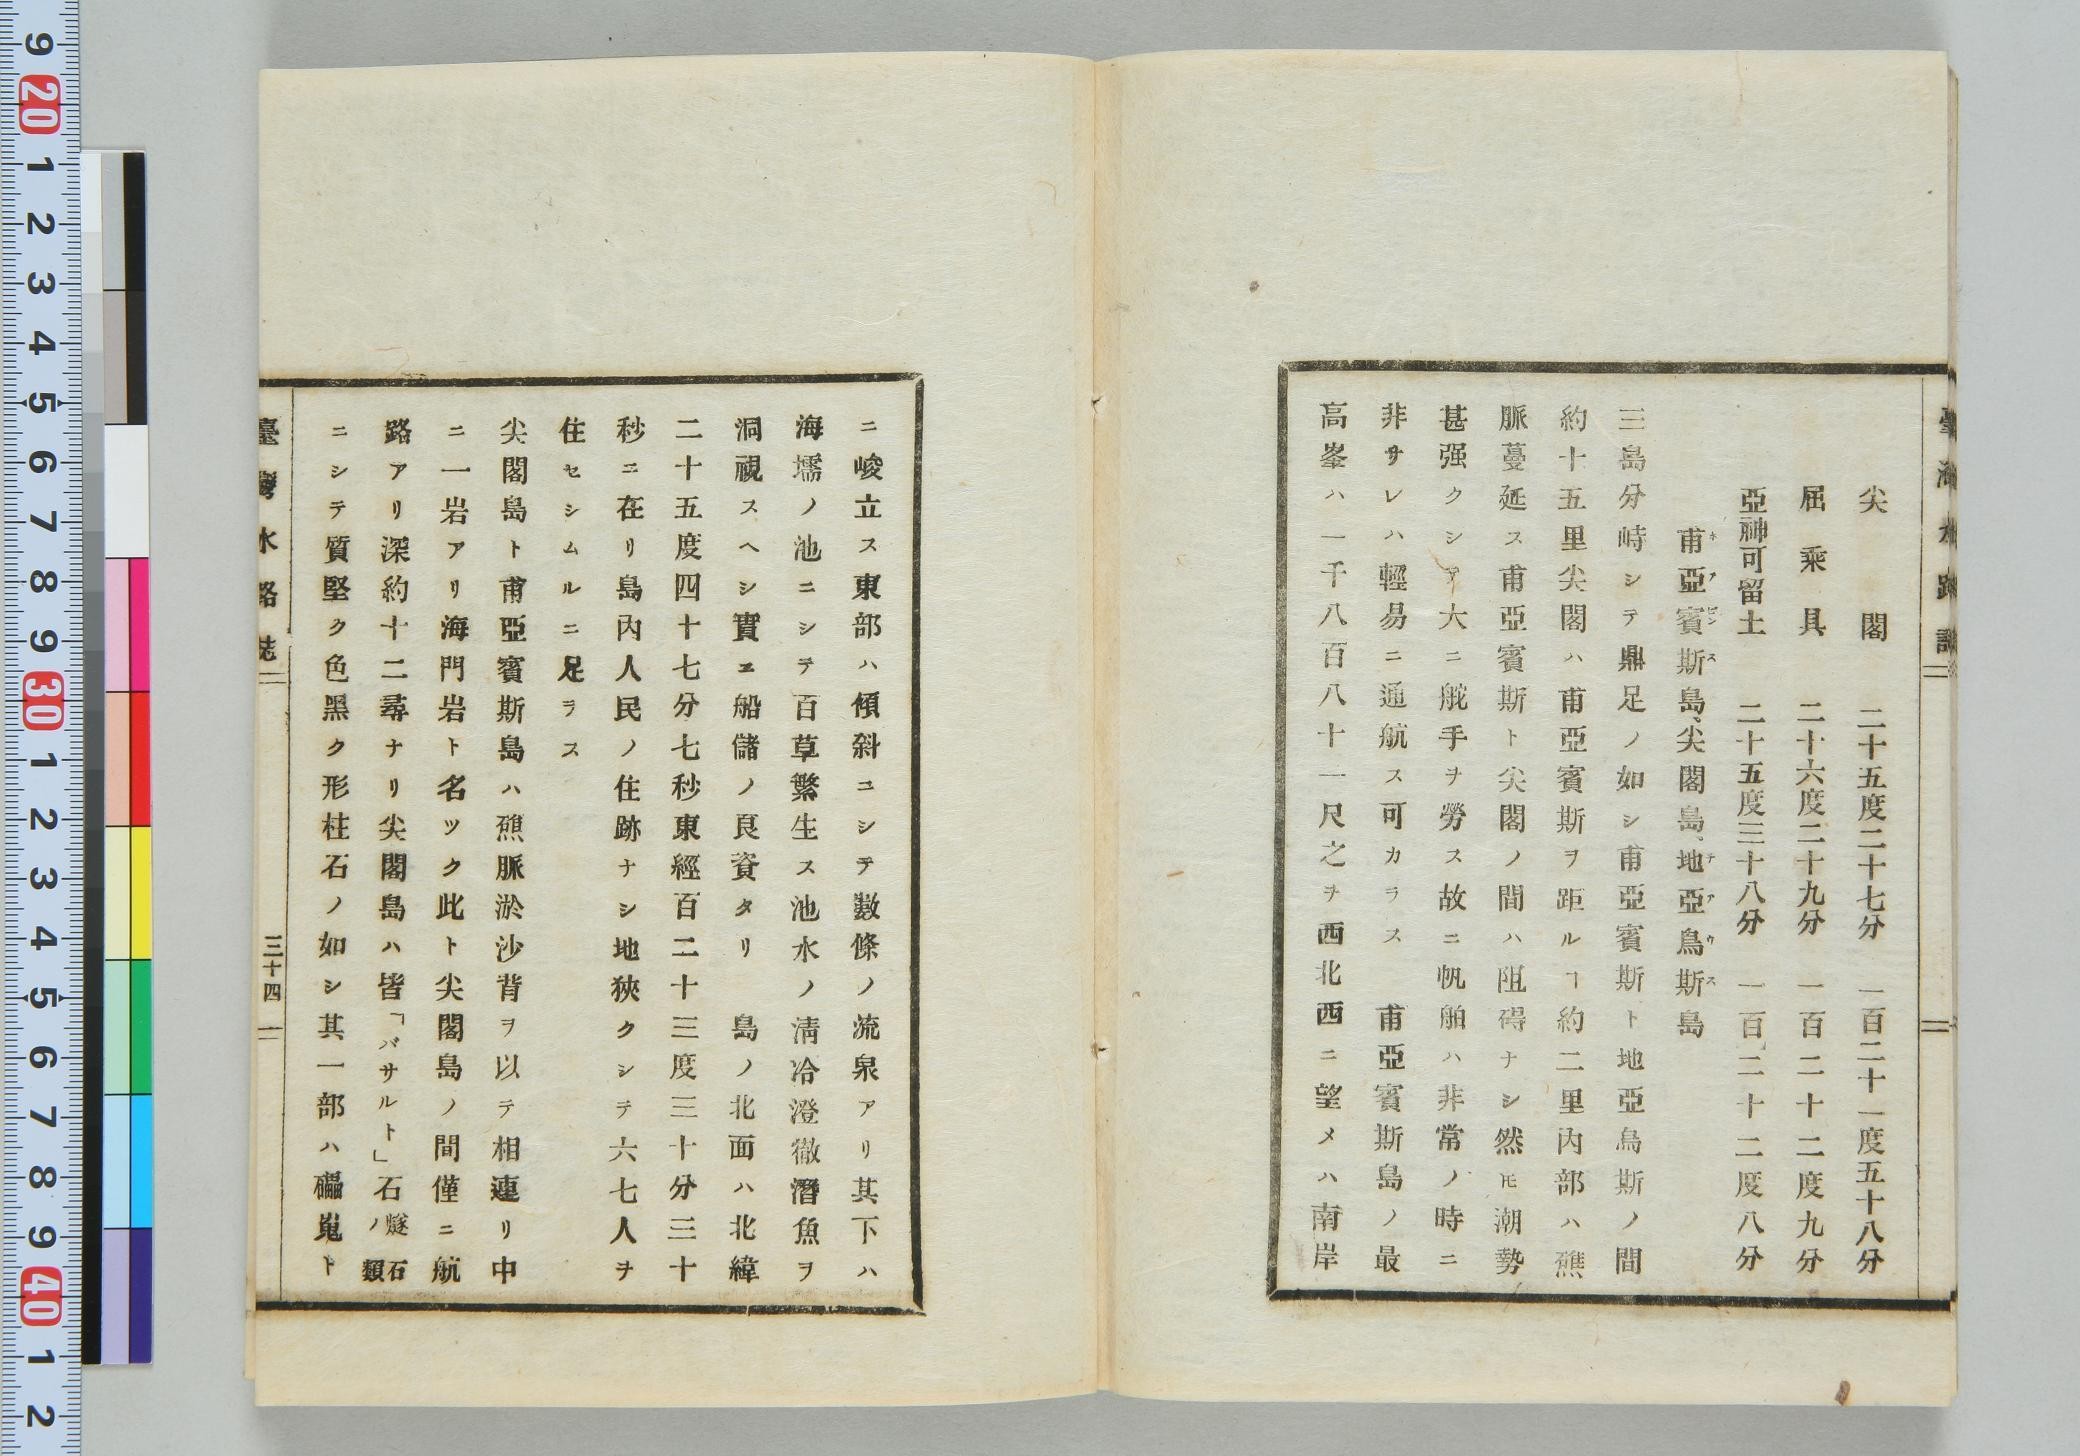 臺灣水路誌
尖閣 二十五度二十七分 一百二十一度五十八分
屈乘具 二十六度二十九分 一百二十二度九分
亞神可留土 二十五度三十八分 一百二十二度八分
甫亞賓斯島、尖閣島、地亞烏斯島
ホアピンス チアウス
三島分峙シテ鼎足ノ如シ甫亞賓斯ト地亞烏斯ノ間
約十五里尖閣ハ甫亞賓斯ヲ距ルヿ約二里内部ハ礁
脈蔓延ス甫亞賓斯ト尖閣ノ間ハ阻碍ナシ然𪜈潮勢
甚强クシテ大ニ舵手ヲ勞ス故ニ帆舶ハ非常ノ時ニ
非サレハ輕易ニ通航ス可カラス 甫亞賓斯島ノ最
高峯ハ一千八百八十一尺之ヲ西北西ニ望メハ南岸
ニ峻立ス東部ハ傾斜ニシテ數條ノ流泉アリ其下ハ
海壖ノ池ニシテ百草繁生ス池水ノ淸冷澄徹潛魚ヲ
洞視スヘシ實ニ船儲ノ良資タリ 島ノ北面ハ北緯
二十五度四十七分七秒東經百二十三度三十分三十
秒ニ在リ島内人民ノ住跡ナシ地狹クシテ六七人ヲ
住セシムルニ足ラス
尖閣島ト甫亞賓斯島ハ礁脈淤沙背ヲ以テ相連リ中
ニ一岩アリ海門岩ト名ツク此ト尖閣島ノ間僅ニ航
路アリ深約十二尋ナリ尖閣島ハ皆「バサルト」石燧石ノ類
ニシテ質堅ク色黑ク形柱石ノ如シ其一部ハ礧嵬ト
臺灣水路誌
三十四
9 20 1 2 3 4 5 6 7 8 9 30 1 2 3 4 5 6 7 8 9 40 1 2